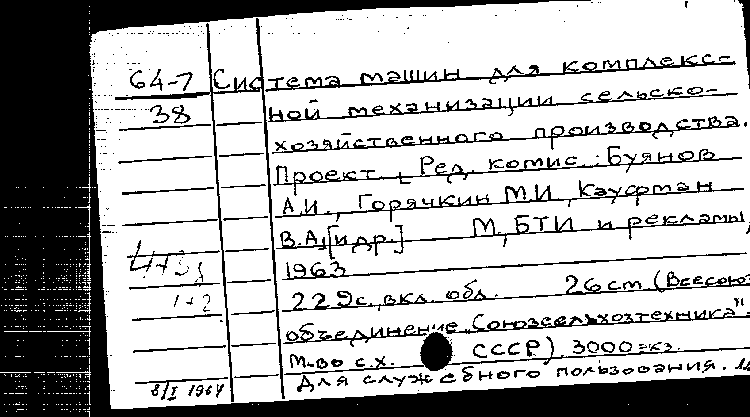 64-7 Система машин для комплекс=
38 ной механизации сельско-
хозяйственного производства.
Проект. Ред. комис.: Буянов
А.И., Горячкин М.И., Кауфман
В.А., [и др.] М., БТИ и рекламы,
1963
1+2 229 с. вкл. обл. 26 cm (Всесоюз
объединение „Союзсельхозтехника"
М-во с.х. СССР). 3000 экз.
8/I 1964 Для служебного пользования.